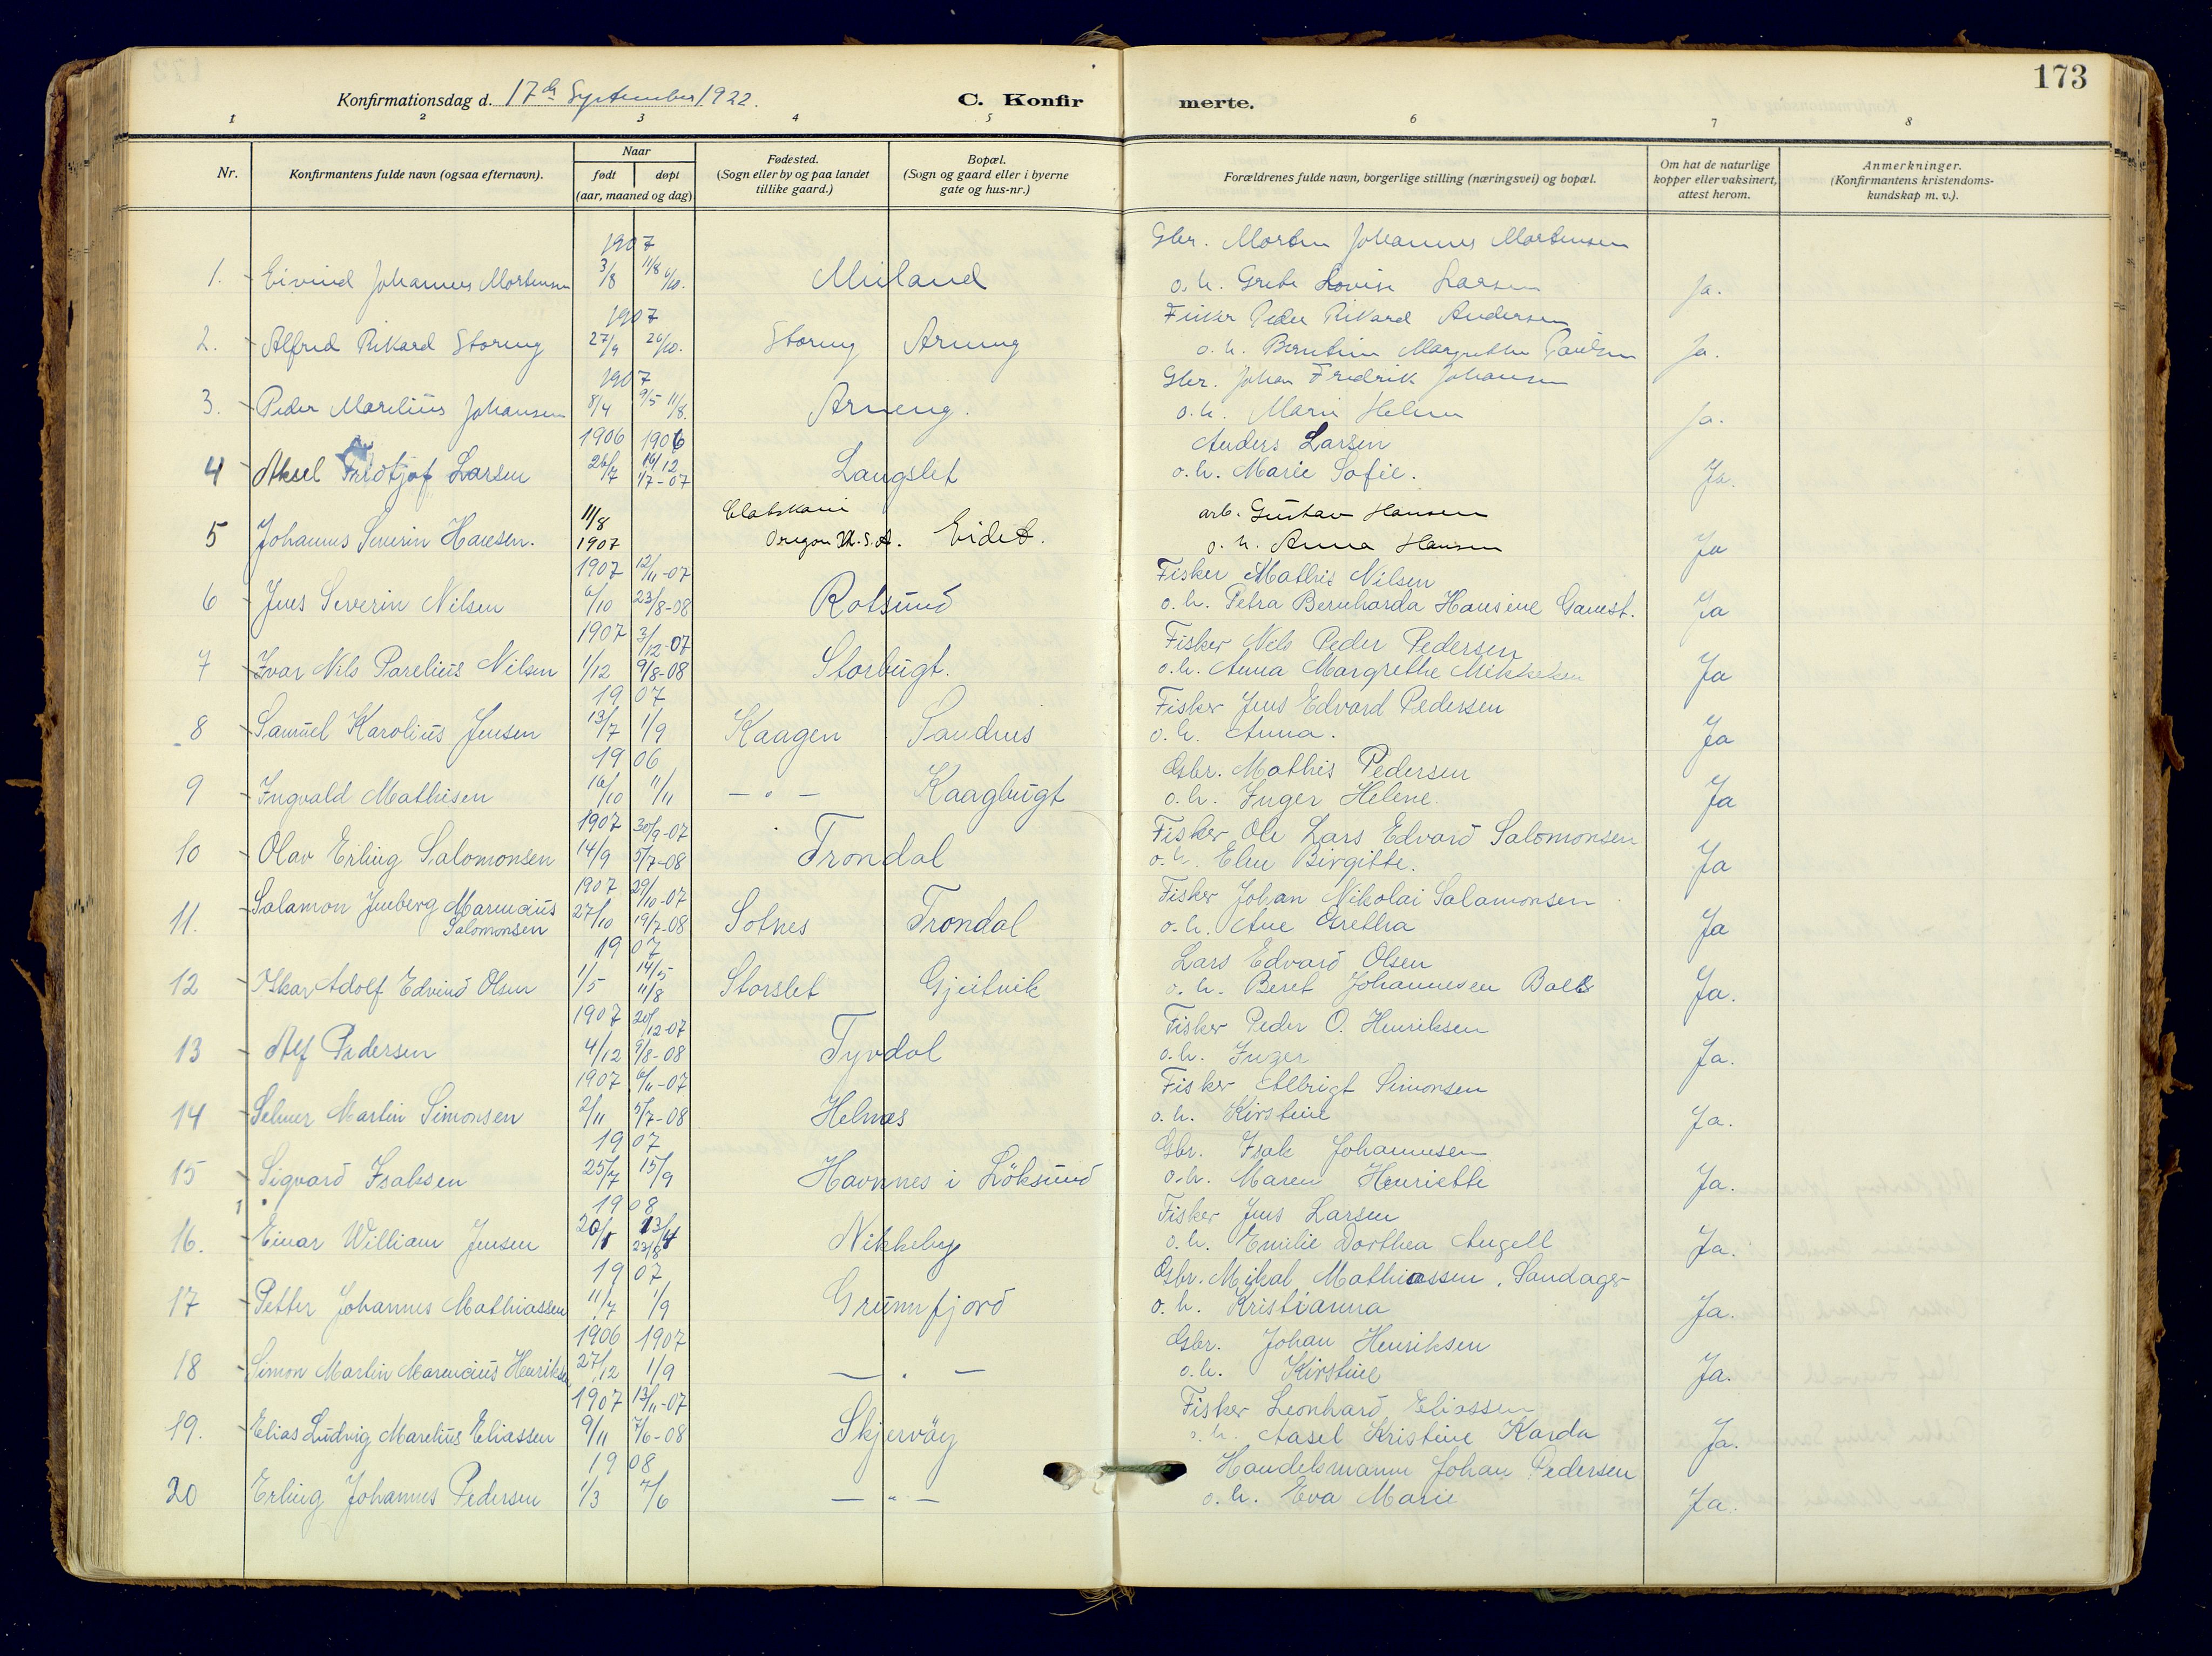 173
Konfirmationsdag d. 17de September 1922.
C. Konfir merte.
1 2 3 4 5 6 7 8
Nr.
Konfirmantens fulde navn (ogsaa efternavn).
Naar
født døpt
(aar, maaned og dag)
Fødested.
(Sogn eller by og paa landet
tillike gaard.)
Bopæl.
(Sogn og gaard eller i byerne
gate og hus-nr.)
Forældrenes fulde navn, borgerlige stilling (næringsvei) og bopæl.
Om hat de naturlige
kopper eller vaksinert,
attest herom.
Anmerkninger.
(Konfirmantens kristendoms-
kundskap m. v.).
1907 Gbr. Morten Johannes Mortensen
1. Eivind Johannes Mortensen 3/8 11/8 6/10. Meiland o. h. Grete Lovise Larsen Ja.
1907 Fisker Peder Rikard Andersen
2. Alfred Rikard Storeng 27/9 20/10. Storeng Arneng o. h. Berntine Margrethe Paulsen Ja.
1907 Gbr. Johan Fredrik Johansen
3. Peder Marelius Johansen 8/4 9/5 11/8. Arneng. o. h. Marie Helene Ja.
1906 1906 Anders Larsen
4 Aksel Fridtjof Larsen 26/7 16/12 1/7-07 Langslet o. h. Marie Sofie. Ja.
11/8 Clatskani arb. Gustav Hansen
5 Johannes Severin Hansen. 1907 Oregon U.S.A. Eidet. o. h. Anna Hansen Ja
1907 12/11-07 Fisker Mathis Nilsen
6 Jens Severin Nilsen 6/10 23/8-08 Rotsund o. h. Petra Bernharda Hansine Gamst. Ja
1907 3/12-07 Fisker Nils Peder Pedersen
7 Ivar Nils Parelius Nilsen 1/12 9/8-08 Storbugt. o. h. Anna Margrethe Mikkelsen Ja
1907 Fisker Jens Edvard Pedersen
8 Samuel Karolius Jensen 13/7 1/9 Kaagen Sandnes o. h. Anna. Ja
1906 Gbr. Mathis Pedersen
9 Ingvald Mathisen 16/10 11/11 — " — Kaagbugt o. h. Inger Helene. Ja
1907 30/9-07 Fisker Ole Lars Edvard Salomonsen
10 Olav Erling Salomonsen 14/9 5/7-08 Trondal o. h. Elen Birgitte. Ja
Salamon Jenberg Marencius 1907 29/10-07 Fisker Johan Nikolai Salamonsen
11. Salomonsen 27/10 19/7-08 Sotnes Trondal o. h. Ane Gretha Ja
1907 14/5 Lars Edvard Olsen
12 Oskar Adolf Edvind Olsen 1/5 11/8 Storslet Gjeitvik o. h. Beret Johannesen Ja.
1907 20/12-07 Fisker Peder O. Henriksen
13 Alf Pedersen 4/12 9/8-08 Tyvdal o. h. Inger Ja.
1907 6/11-07 Fisker Albrigt Simonsen
14 Selmer Martin Simonsen 2/11 5/7-08 Helnes o. h. Kirstine Ja.
1907 Gbr. Isak Johannesen
15 Sigvard Isaksen 25/7 15/9 Havnnes i Löksund o. h. Maren Henriette Ja.
1908 Fisker Jens Larsen
16. Einar William Jensen 23/8 Nikkeby o. h. Emilie Dorthea Angell Ja.
1907 Gbr. Mikal Mathiassen, Sandager
17 Petter Johannes Mathiassen 11/7 1/9 Grunnfjord o. h. Kristianna Ja.
1906 1907 Gbr. Johan Henriksen
18 Simon Martin Marencius Henriksen 27/12 1/9 — " — o. h. Kirstine Ja.
1907 13/11-07 Fisker Leonhard Eliassen
19. Elias Ludvig Marelius Eliassen 9/11 7/6-08 Skjervöy o. h. Aasel Kristine Karda Ja.
1908 Handelsmann Johan Pedersen
20 Erling Johannes Pedersen 1/3 7/6 — " — o. h. Eva Marie Ja.